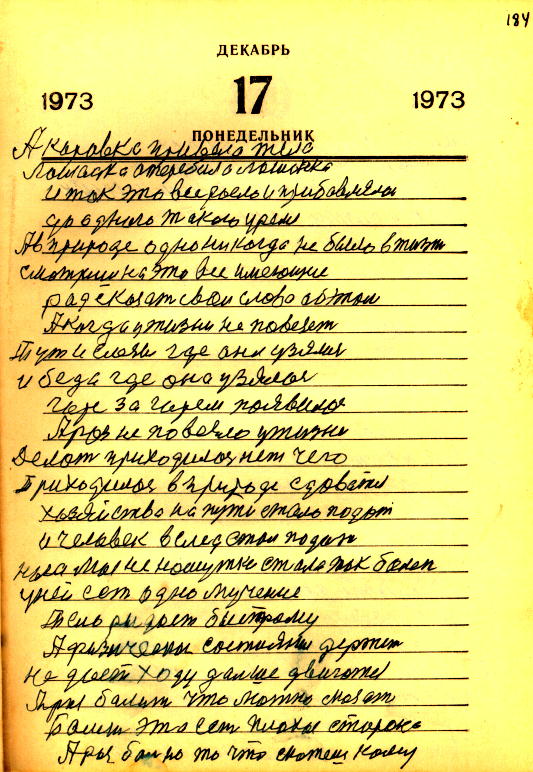 184
ДЕКАБРЬ
1973 17 1973
ПОНЕДЕЛЬНИК
А каровка привела тела
Лошадка жеребила
и так это все росло и прибавляла
до одного такого уремя
А в природе одно никогда не было в жизни
смотрели на это все имеющие
радскажат свои слова об том
А когда у жизни не повезет
Тут и слези где они узялися
и беда где она узялася
горе за горем появилося
А раз не повезло у жизни
Делат приходилося нет чего
Приходилося в природе сдовати
хозяйство на пути стало подат
и человек вслед стал подат
на мы не на шутки стала так болет
у ней ест одно мучение
Тело рыдает быстрому
А физически состояния держит
не дает ходу дальше двигатся
А раз балит что можно сказат
Болит это ест плохая сторона
А раз больно то что скажеш кому